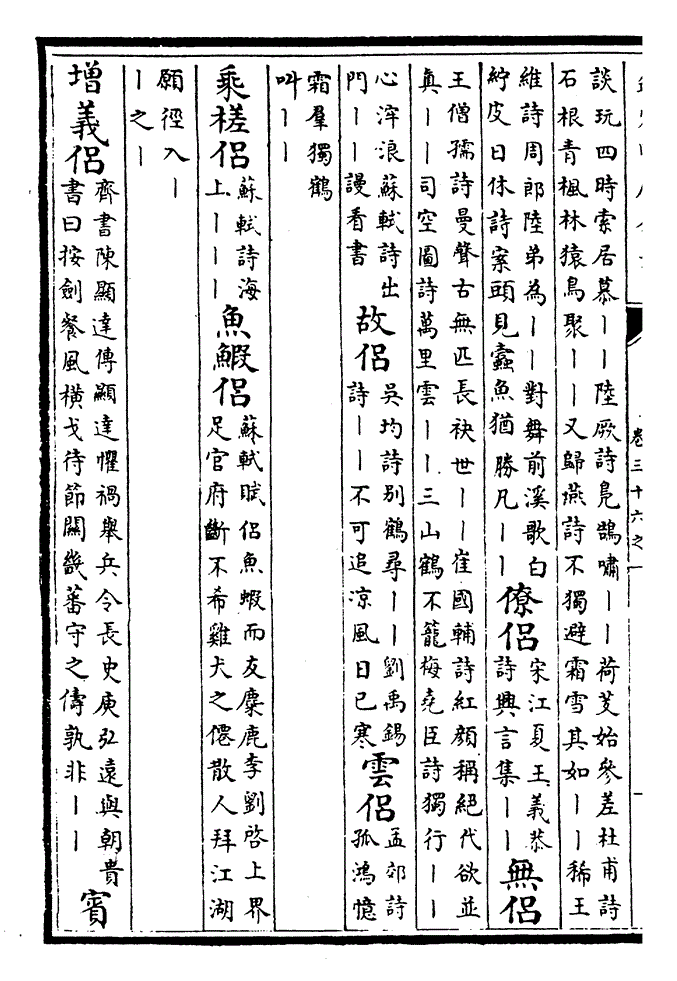 卷三十六之一
談玩四時索居慕丨丨陸厥詩鳬鵠嘯丨丨荷芰始參差杜甫詩
石根青楓林猿鳥聚丨丨又歸燕詩不獨避霜雪其如丨丨稀王
維詩周郎陸弟為丨丨對舞前溪歌白
紵皮日休詩案頭見蠹魚猶勝凡丨丨
僚侶
宋江夏王義恭
詩興言集丨丨
無侶
王僧孺詩曼聲古無匹長袂世丨丨崔國輔詩紅顏稱絕代欲並
真丨丨司空圖詩萬里雲丨丨三山鶴不籠梅堯臣詩獨行丨丨
心滓浪蘇軾詩出
門丨丨謾看書
故侶
吳均詩别鶴尋丨丨劉禹錫
詩丨丨不可追涼風日已寒
雲侶
孟郊詩
孤鴻憶
霜羣獨鶴
叫丨丨
乘槎侶
蘇軾詩海
上丨丨丨
魚鰕侶
蘇軾賦侶魚蝦而友麋鹿李劉啓上界
足官府斷不希雞犬之僊散人拜江湖
願徑入丨
丨之丨
增義侶
齊書陳顯達傳顯達懼禍舉兵令長史庾弘遠與朝貴
書曰按劍餐風横戈待節關畿蕃守之儔孰非丨丨
賓